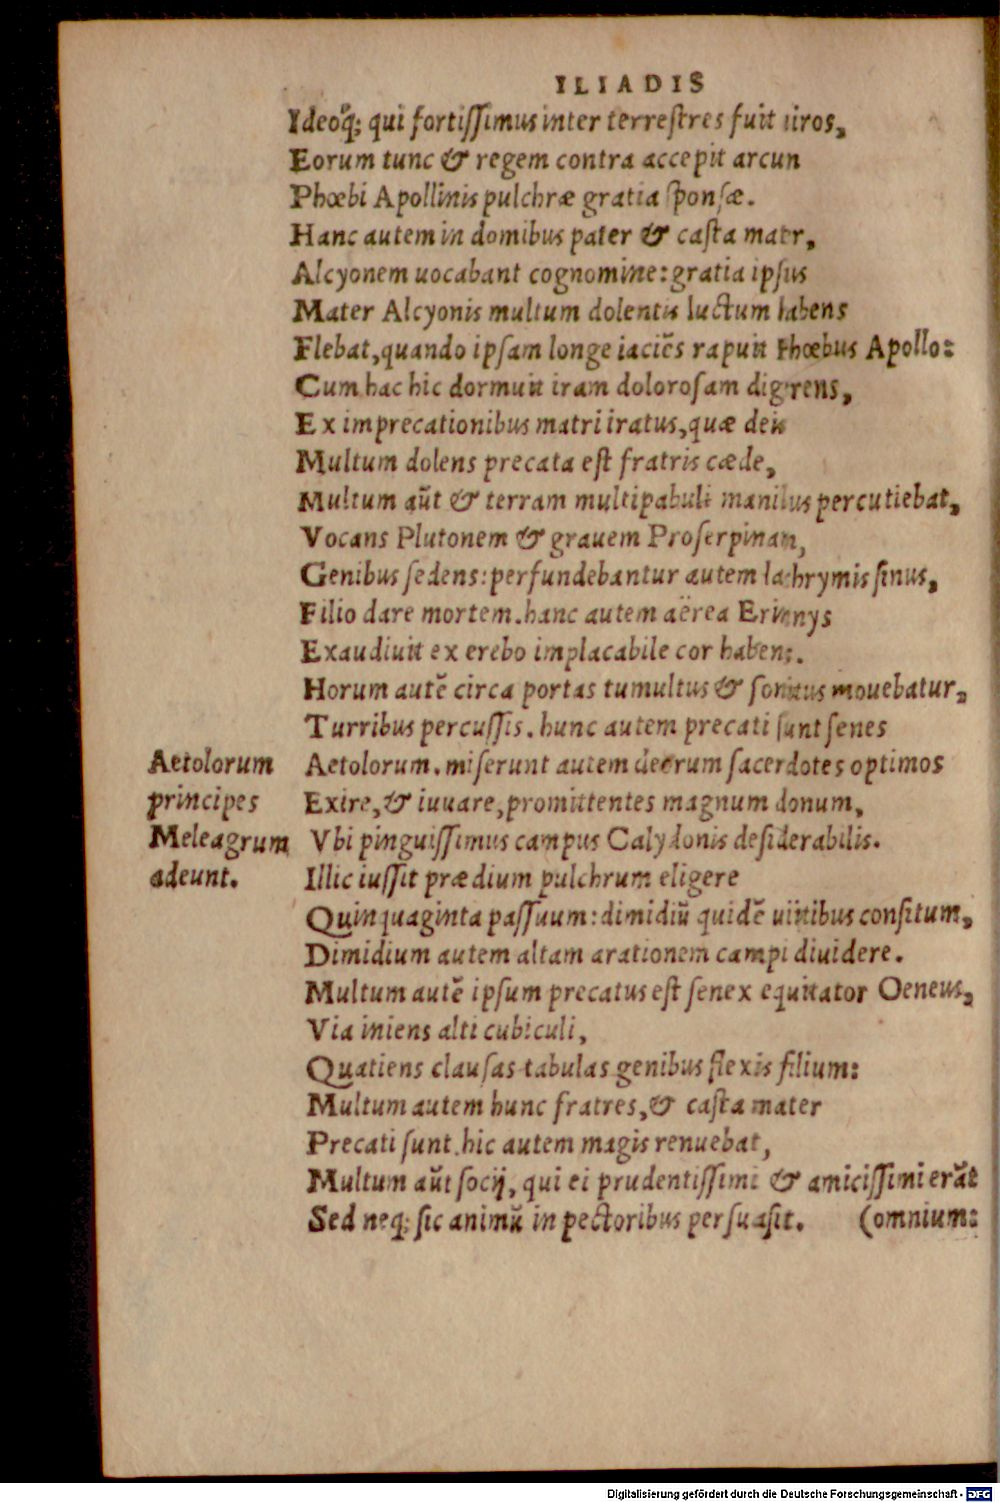 ILIADIS
Ideoq́; qui fortissimus inter terrestres fuit uiros,
Eorum tunc & regem contra accepit arcun
Phœbi Apollinis pulchræ gratia sponsæ.
Hanc autem in domibus pater & casta matr,
Alcyonem uocabant cognomine: gratia ipsius
Mater Alcyonis multum dolentis luctum habens
Flebat, quando ipsam longe iaciẽs rapuit Phœbus Apollo:
Cum hac hic dormuit iram dolorosam digerens,
Ex imprecationibus matri iratus, quæ deis
Multum dolens precata est fratris cæde,
Multum aũt & terram multipabulã manibus percutiebat,
Vocans Plutonem & grauem Proserpinam,
Genibus sedens: perfundebantur autem lachrymis sinus,
Filio dare mortem. hanc autem aërea Erinnys
Exaudiuit ex erebo implacabile cor habens.
Horum autẽ circa portas tumultus & sonitus mouebatur,
Turribus percussis. hunc autem precati sunt senes
Aetolorum. miserunt autem deorum sacerdotes optimos
Exire, & iuuare, promittentes magnum donum,
Vbi pinguissimus campus Calydonis desiderabilis.
Illic iussit prædium pulchrum eligere
Quinquaginta passuum: dimidiũ quidẽ uitibus consitum,
Dimidium autem altam arationem campi diuidere.
Multum autẽ ipsum precatus est senex equitator Oeneus,
Via iniens alti cubiculi,
Quatiens clausas tabulas genibus flexis filium:
Multum autem hunc fratres, & casta mater
Precati sunt. hic autem magis renuebat,
Multum aũt socij, qui ei prudentissimi & amicissimi erãt
Sed neq; sic animũ in pectoribus persuasit. (omnium:
Aetolorum
principes
Meleagrum
adeunt.
Digitalisierung gefördert durch die Deutsche Forschungsgemeinschaft - DFG